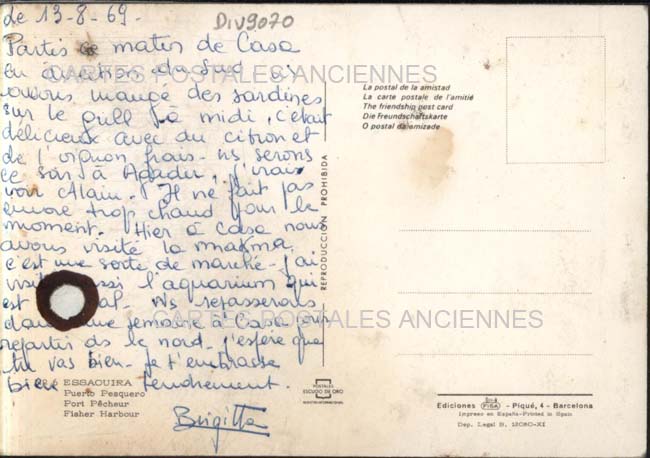 le 13-8-69-
Div9070
Partis ce matin de Casa
en direction du Sud
avons mangé des sardines
sur le grill à midi, c'était
délicieux avec du citron et
de l'oignon frais - ns serons
ce soir à Agadir, j'irais
voir Alain. Il ne fait pas
encore trop chaud pour le
moment. Hier à Casa nous
avons visité la
c'est une sorte de marché - j'ai
l'aquarium qui
est ns repasserons
semaine à Casa
repartir ds le nord - j'espère que
tu vas bien - Je t'embrasse
bien tendrement.
Brigitte
CARTES POSTALES ANCIENNES
CARTES POSTALES ANCIENNES
ESSAOUIRA
Puerto Pesquero
Port Pêcheur
Fisher Harbour
REPRODUCCION PROHIBIDA
POSTALES
ESCUDO DE ORO
La postal de la amistad
La carte postale de l'amitié
The friendship post card
Die Freundschaftskarte
O postal da amizade
Ediciones FISA - Piqué, 4 - Barcelona
Impreso en España-Printed in Spain
Dep. Legal B. 12060-XI